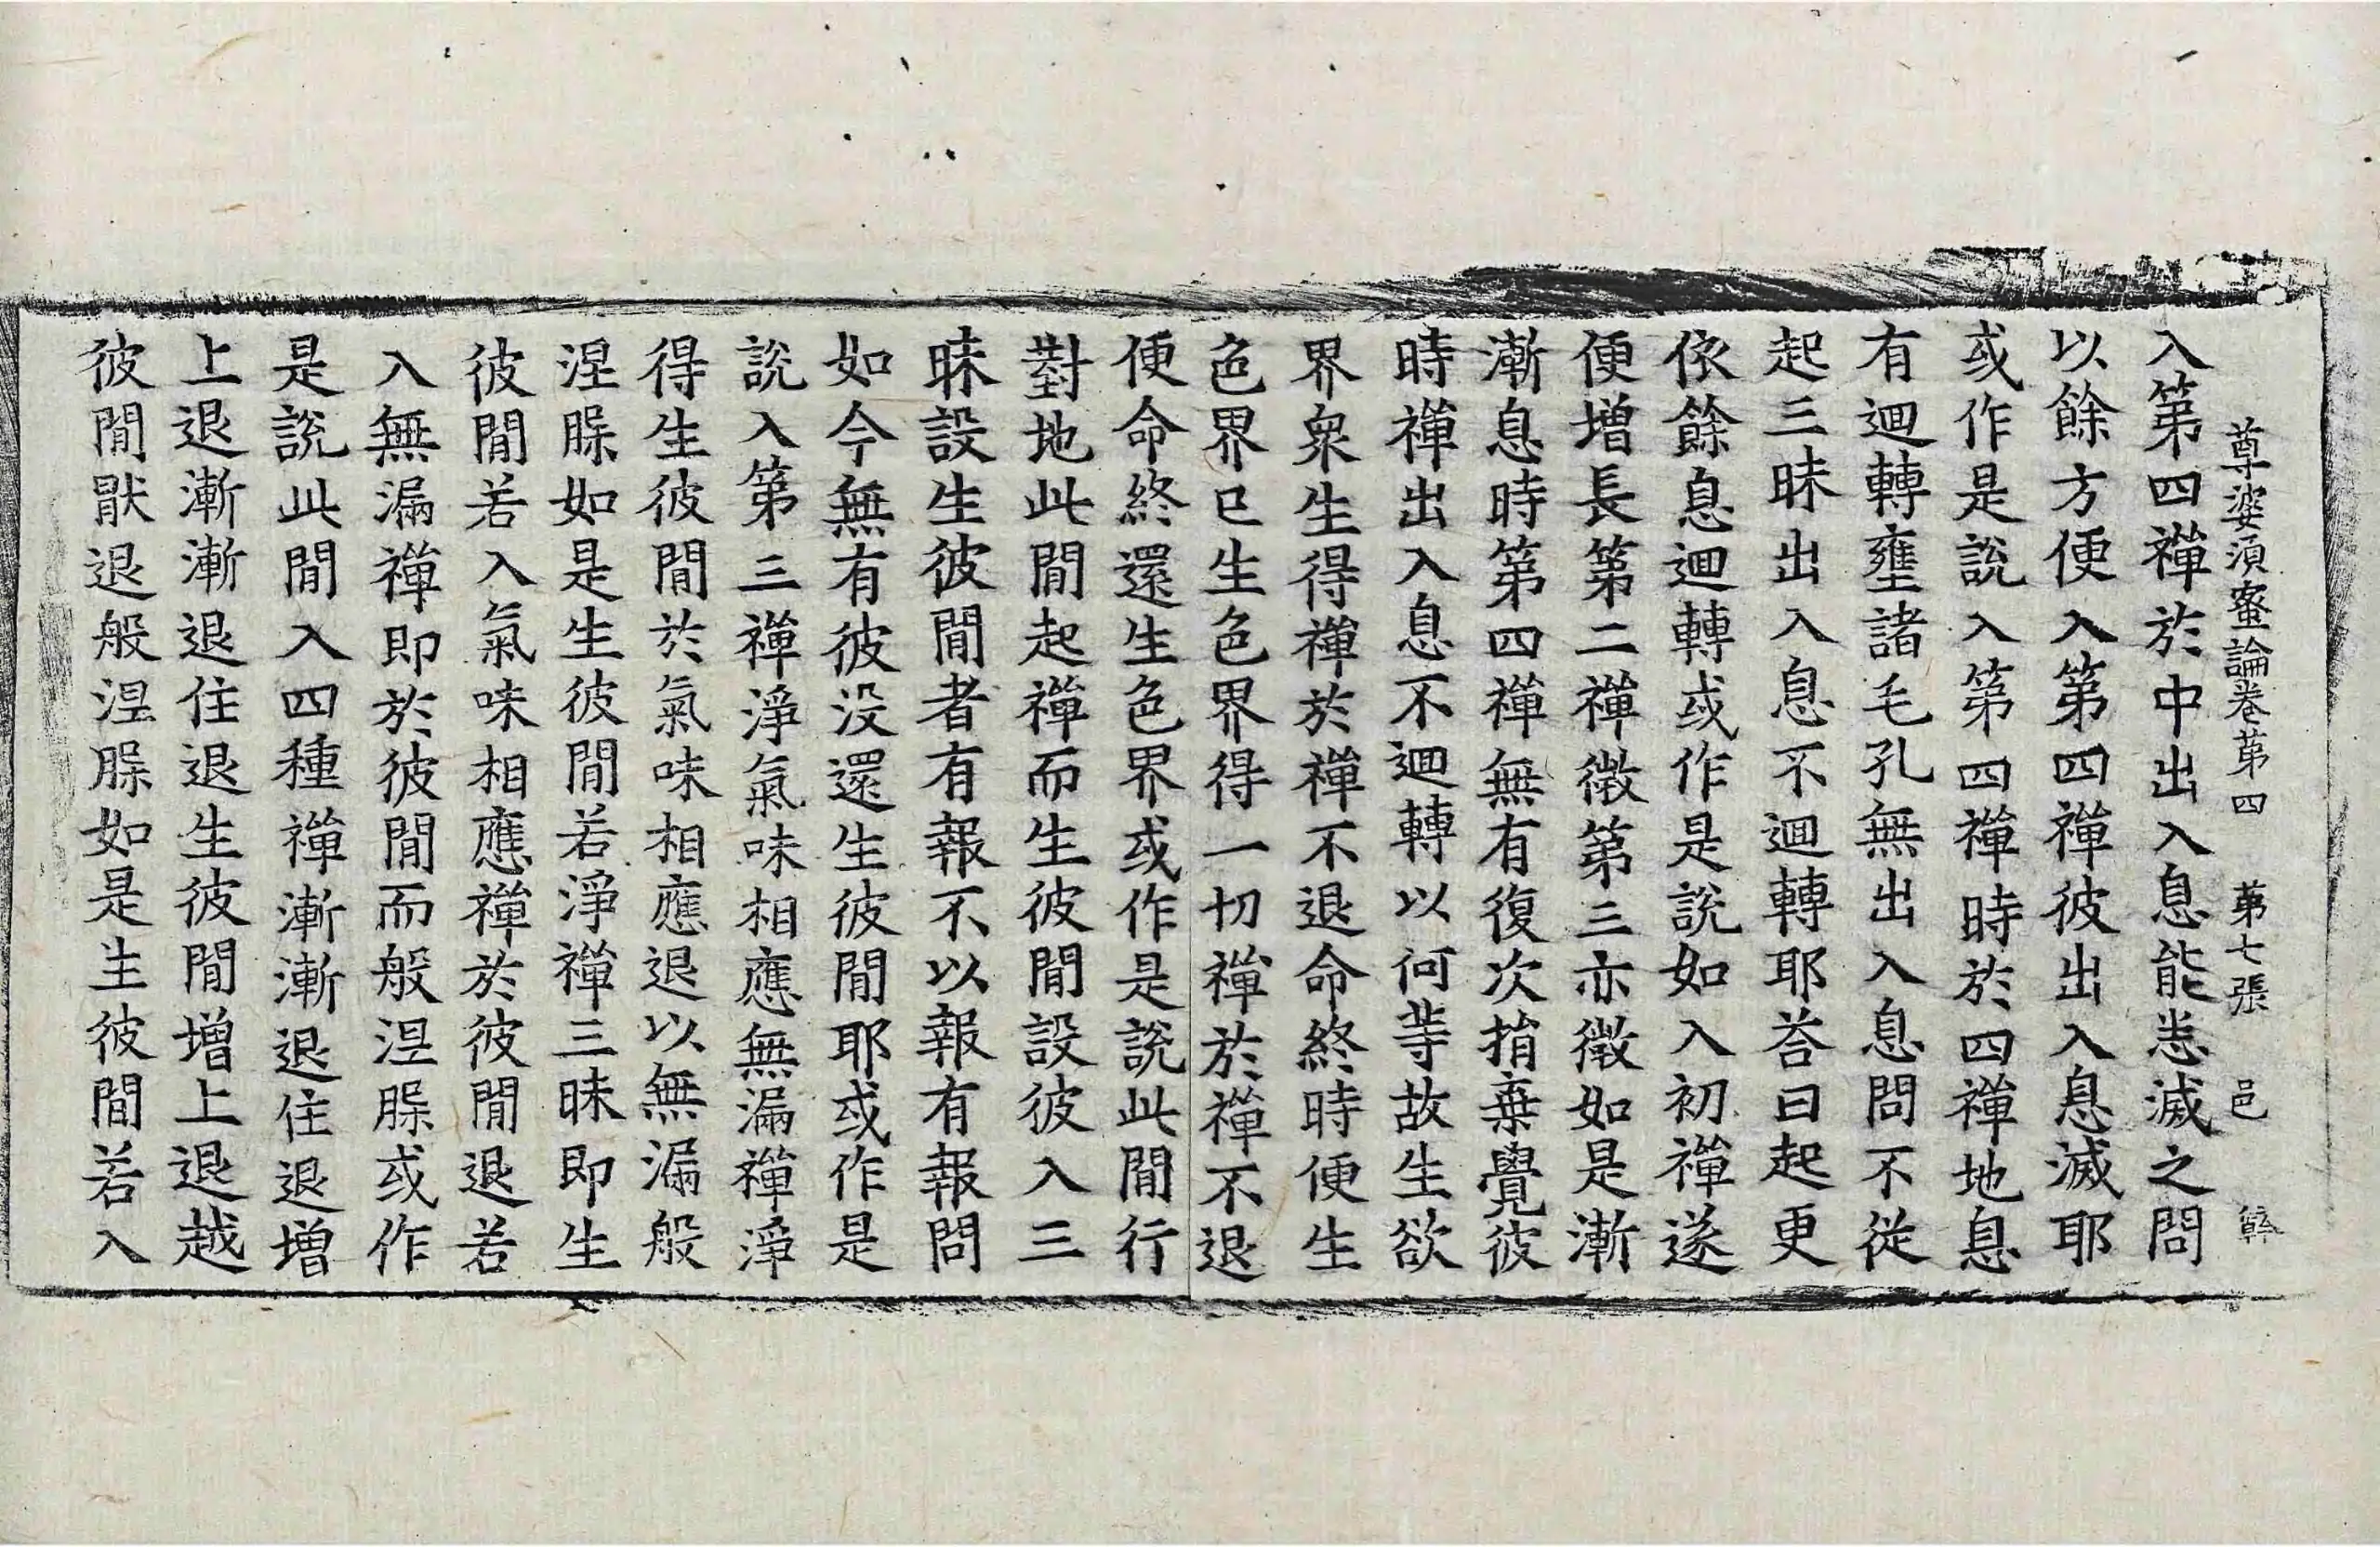 尊婆湏蜜論卷苐四 苐七張 邑
入第四禪於中出入息能恙滅之問
以餘方便入第四禪彼出入息滅耶
或作是説入第四禪時於四禪地息
有迴轉壅諸毛孔無出入息問不從
起三昧出入息不迴轉耶荅曰起更
依餘息迴轉或作是說如入初禪遂
便增長第二禪徵第三亦徵如是漸
漸息時第四禪無有復次捎棄覺彼
時禪出入息不迴轉以何等故生欲
界衆生得禪於禪不退命終時便生
色界已生色界得一切禪於禪不退
便命終還生色界或作是說此間行
對地此間起禪而生彼間設彼入三
昧設生彼間者有報不以報有報問
如今無有彼没還生彼間耶或作是
說入第三禪淨氣味相應無漏禪淨
得生彼間於氣味相應退以無漏般
涅槃如是生彼間若淨禪三昧即生
彼間若入氣味相應禪於彼間退若
入無漏禪即於彼間而般涅槃或作
是說此間入四種禪漸漸退住退增
上退漸漸退住退生彼間增上退越
彼間猒退般涅槃如是生彼間若入